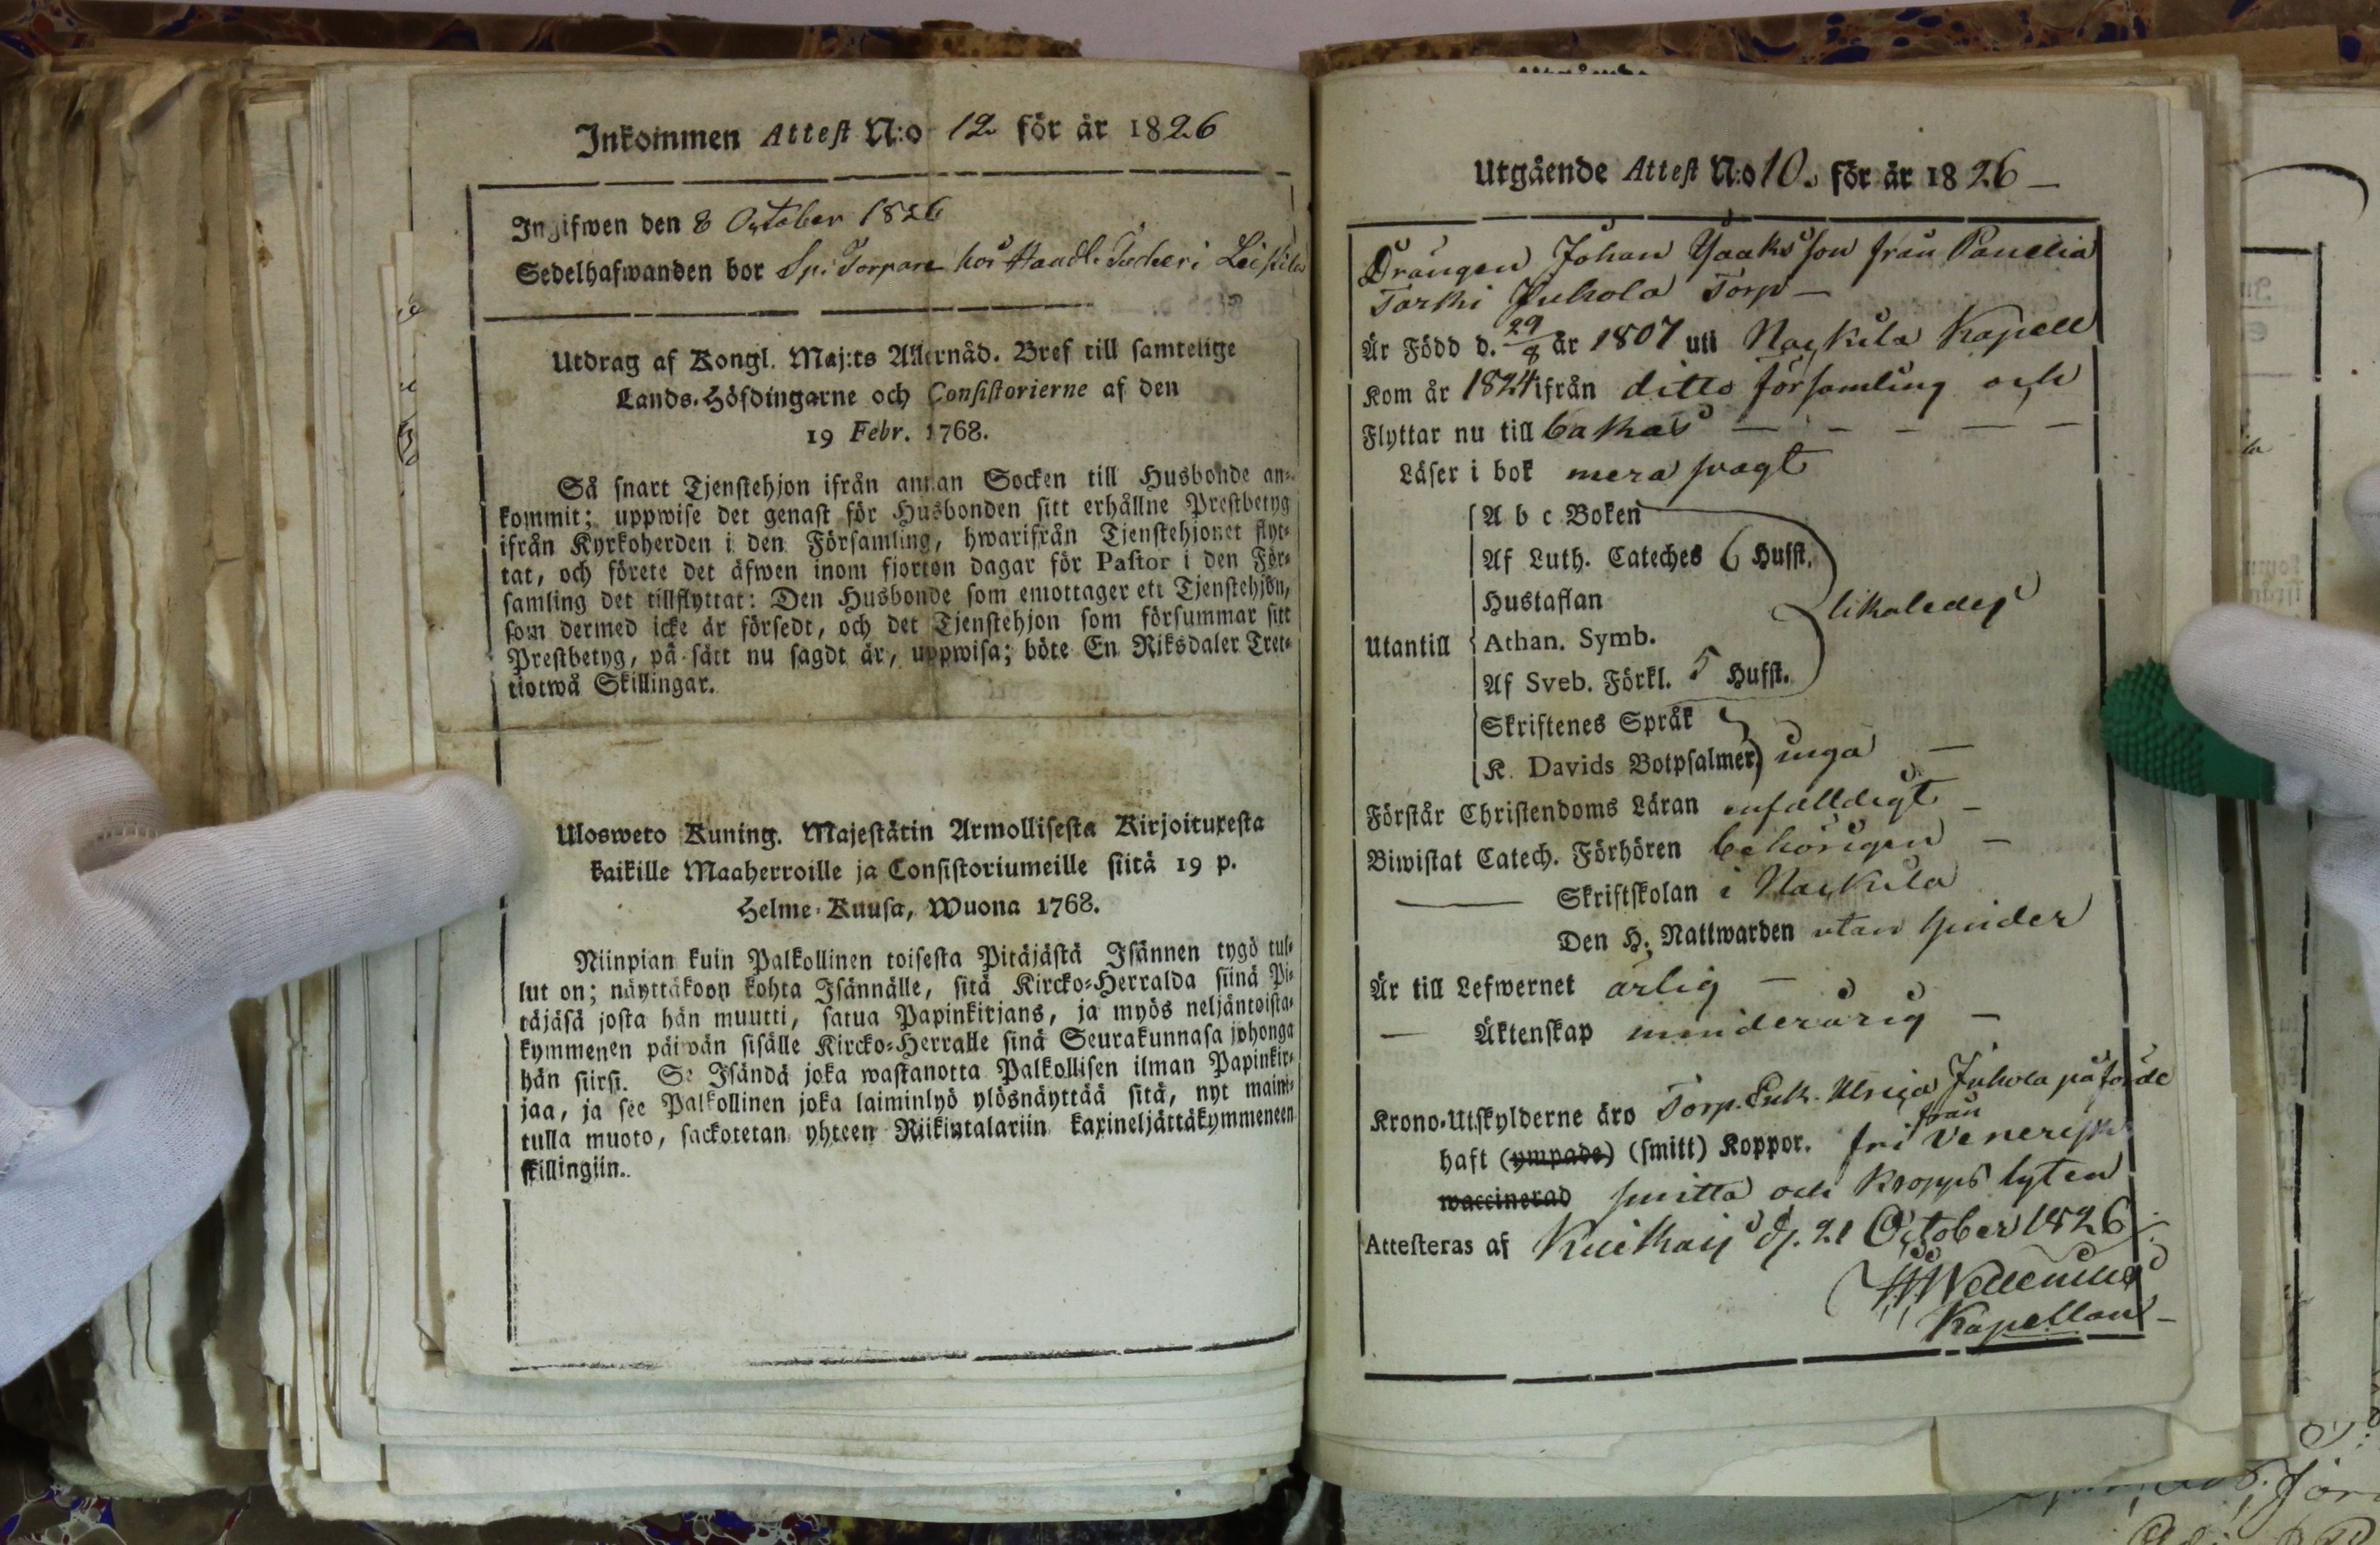 Inkommen Attest N:o 12 för år 1826
Ingifwen den 8 October 1826
Sedelhafwanden bor Spi. Torpare hos
Utdrag af Kongl. Maj:ts Allernåd. Bref till samtelige
Lands-Höfdingarne och Consistorierne af den
19 Febr. 1768.
Så snart Tjenstehjon ifrån annan Socken till Husbonde an-
kommit; uppwise det genast för Husbonden sitt erhållne Prestbetyg
ifrån Kyrkoherden i den Församling, hwarifrån Tjenstehjonet flyt-
tat, och förete det äfwen inom fjorton dagar för Pastor i den För-
samling det tillflyttat: Den Husbonde som emottager ett Tjenstehjon,
som dermed icke är försedt, och det Tjenstehjon som försummar sitt
Prestbetyg, på sätt nu sagdt är, uppwisa; böte En Riksdaler Tret-
tiotwå Skillingar.
Ulosweto Kuning. Majestätin Armollisesta Kirjoituxesta
kaikille Maaherroille ja Consistoriumeille siitä 19 p.
Helme-Kuusa, Wuona 1768.
Niinpian kuin Palkollinen toisesta Pitäjästä Isännen tygö tul-
lut on; näyttäkoon kohta Isännälle, sitä Kircko-Herralda siinä Pi-
täjäsä josta hän muutti, satua Papinkirjans, ja myös neljäntoista-
kymmenen päiwän sisälle Kircko-Herralle sinä Seurakunnasa johonga
hän siirsi. Se Isändä joka wastanotta Palkollisen ilman Papinkir-
jaa, ja see Palkollinen joka laiminlyö ylösnäyttää sitä, nyt maini-
tulla muoto, sackotetan yhteen Riikintalariin kaxineljättäkymmeneen
skillingiin.
Utgående Attest N:o 10. för år 1826 —
Drängen Johan Isaksson från Panelia
Tarki Juhola Torp —
Är Född d. 29/8 år 1807 uti Nackila Kapell
Kom år 1824 ifrån ditto församling och
Flyttar nu till bakas — — — — —
Läser i bok mera svagt
A b c Boken
Af Luth. Cateches 6 Hufst.
Hustaflan
likaledes
Utantill
Athan. Symb.
Af Sveb. Förkl. 5 Hufst.
Skriftenes Språk
K. Davids Botpsalmer inga —
Förstår Christendoms Läran enfalldigt —
Biwistat Catech. Förhören behörigen —
— Skriftskolan i Nackila
Den H. Nattwarden utan hinder
Är till Lefwernet ärlig —
— Äktenskap minderårig —
Krono-Utskylderne äro Torp. Enk. Ulrica Juhola påförde
haft (ympade) (smitt) Koppor. fri från Venerisk
waccinerad smitta och kropps lyten
Attesteras af Kiukais d. 21 October 1826
Kapellan —